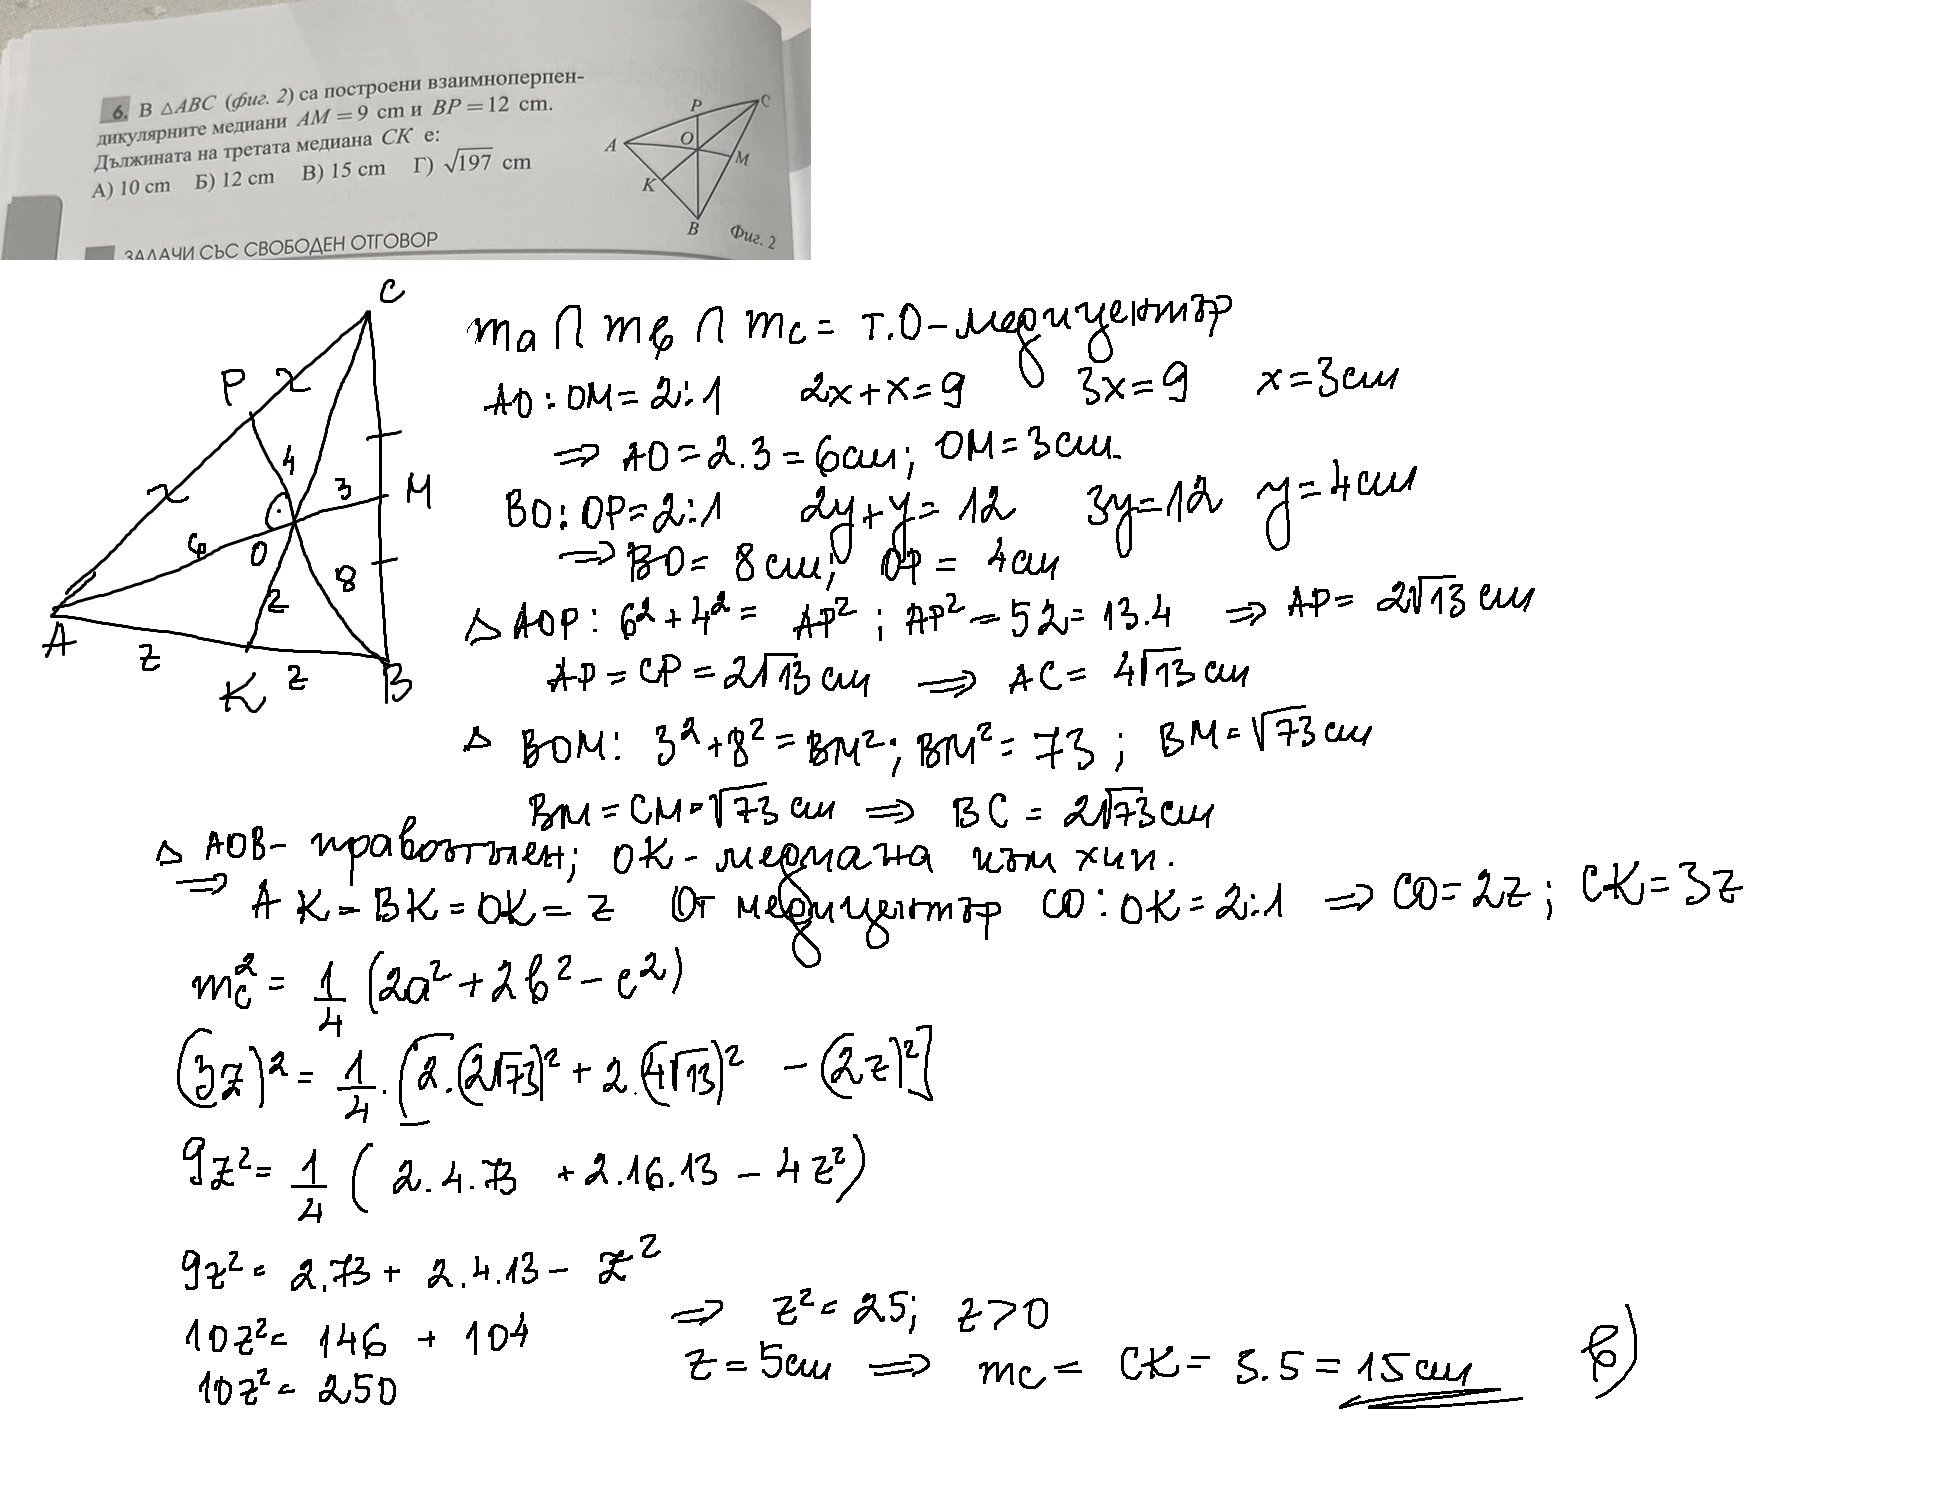 6. В △ABC (фиг. 2) са построени взаимноперпен-
дикулярните медиани AM = 9 cm и BP = 12 cm.
Дължината на третата медиана CK е:
А) 10 cm Б) 12 cm В) 15 cm Г) √197 cm
P
C
A
O
M
K
B
Фиг. 2
ЗАДАЧИ СЪС СВОБОДЕН ОТГОВОР
C
P x
4
x 3 M
6 O
8
z
A z
K z B
mₐ ∩ m_в ∩ m_c = т.O - медицентър
AO : OM = 2:1 2x + x = 9 3x = 9 x = 3 cm
⇒ AO = 2.3 = 6 cm; OM = 3 cm.
BO : OP = 2:1 2y + y = 12 3y = 12 y = 4 cm
⇒ BO = 8 cm; OP = 4 cm
△ AOP: 6² + 4² = AP²; AP² = 52 = 13.4 ⇒ AP = 2√13 cm
AP = CP = 2√13 cm ⇒ AC = 4√13 cm
△ BOM: 3² + 8² = BM²; BM² = 73; BM = √73 cm
BM = CM = √73 cm ⇒ BC = 2√73 cm
△ AOB - правоъгълен; OK - медиана към хип.
⇒ AK = BK = OK = z От медицентър CO : OK = 2:1 ⇒ CO = 2z; CK = 3z
m_c² = 1/4 (2a² + 2b² - c²)
(3z)² = 1/4 . [2.(2√73)² + 2.(4√13)² - (2z)²]
9z² = 1/4 (2.4.73 + 2.16.13 - 4z²)
9z² = 2.73 + 2.4.13 - z²
10z² = 146 + 104
10z² = 250
⇒ z² = 25; z > 0
z = 5 cm ⇒ m_c = CK = 3.5 = 15 cm в)